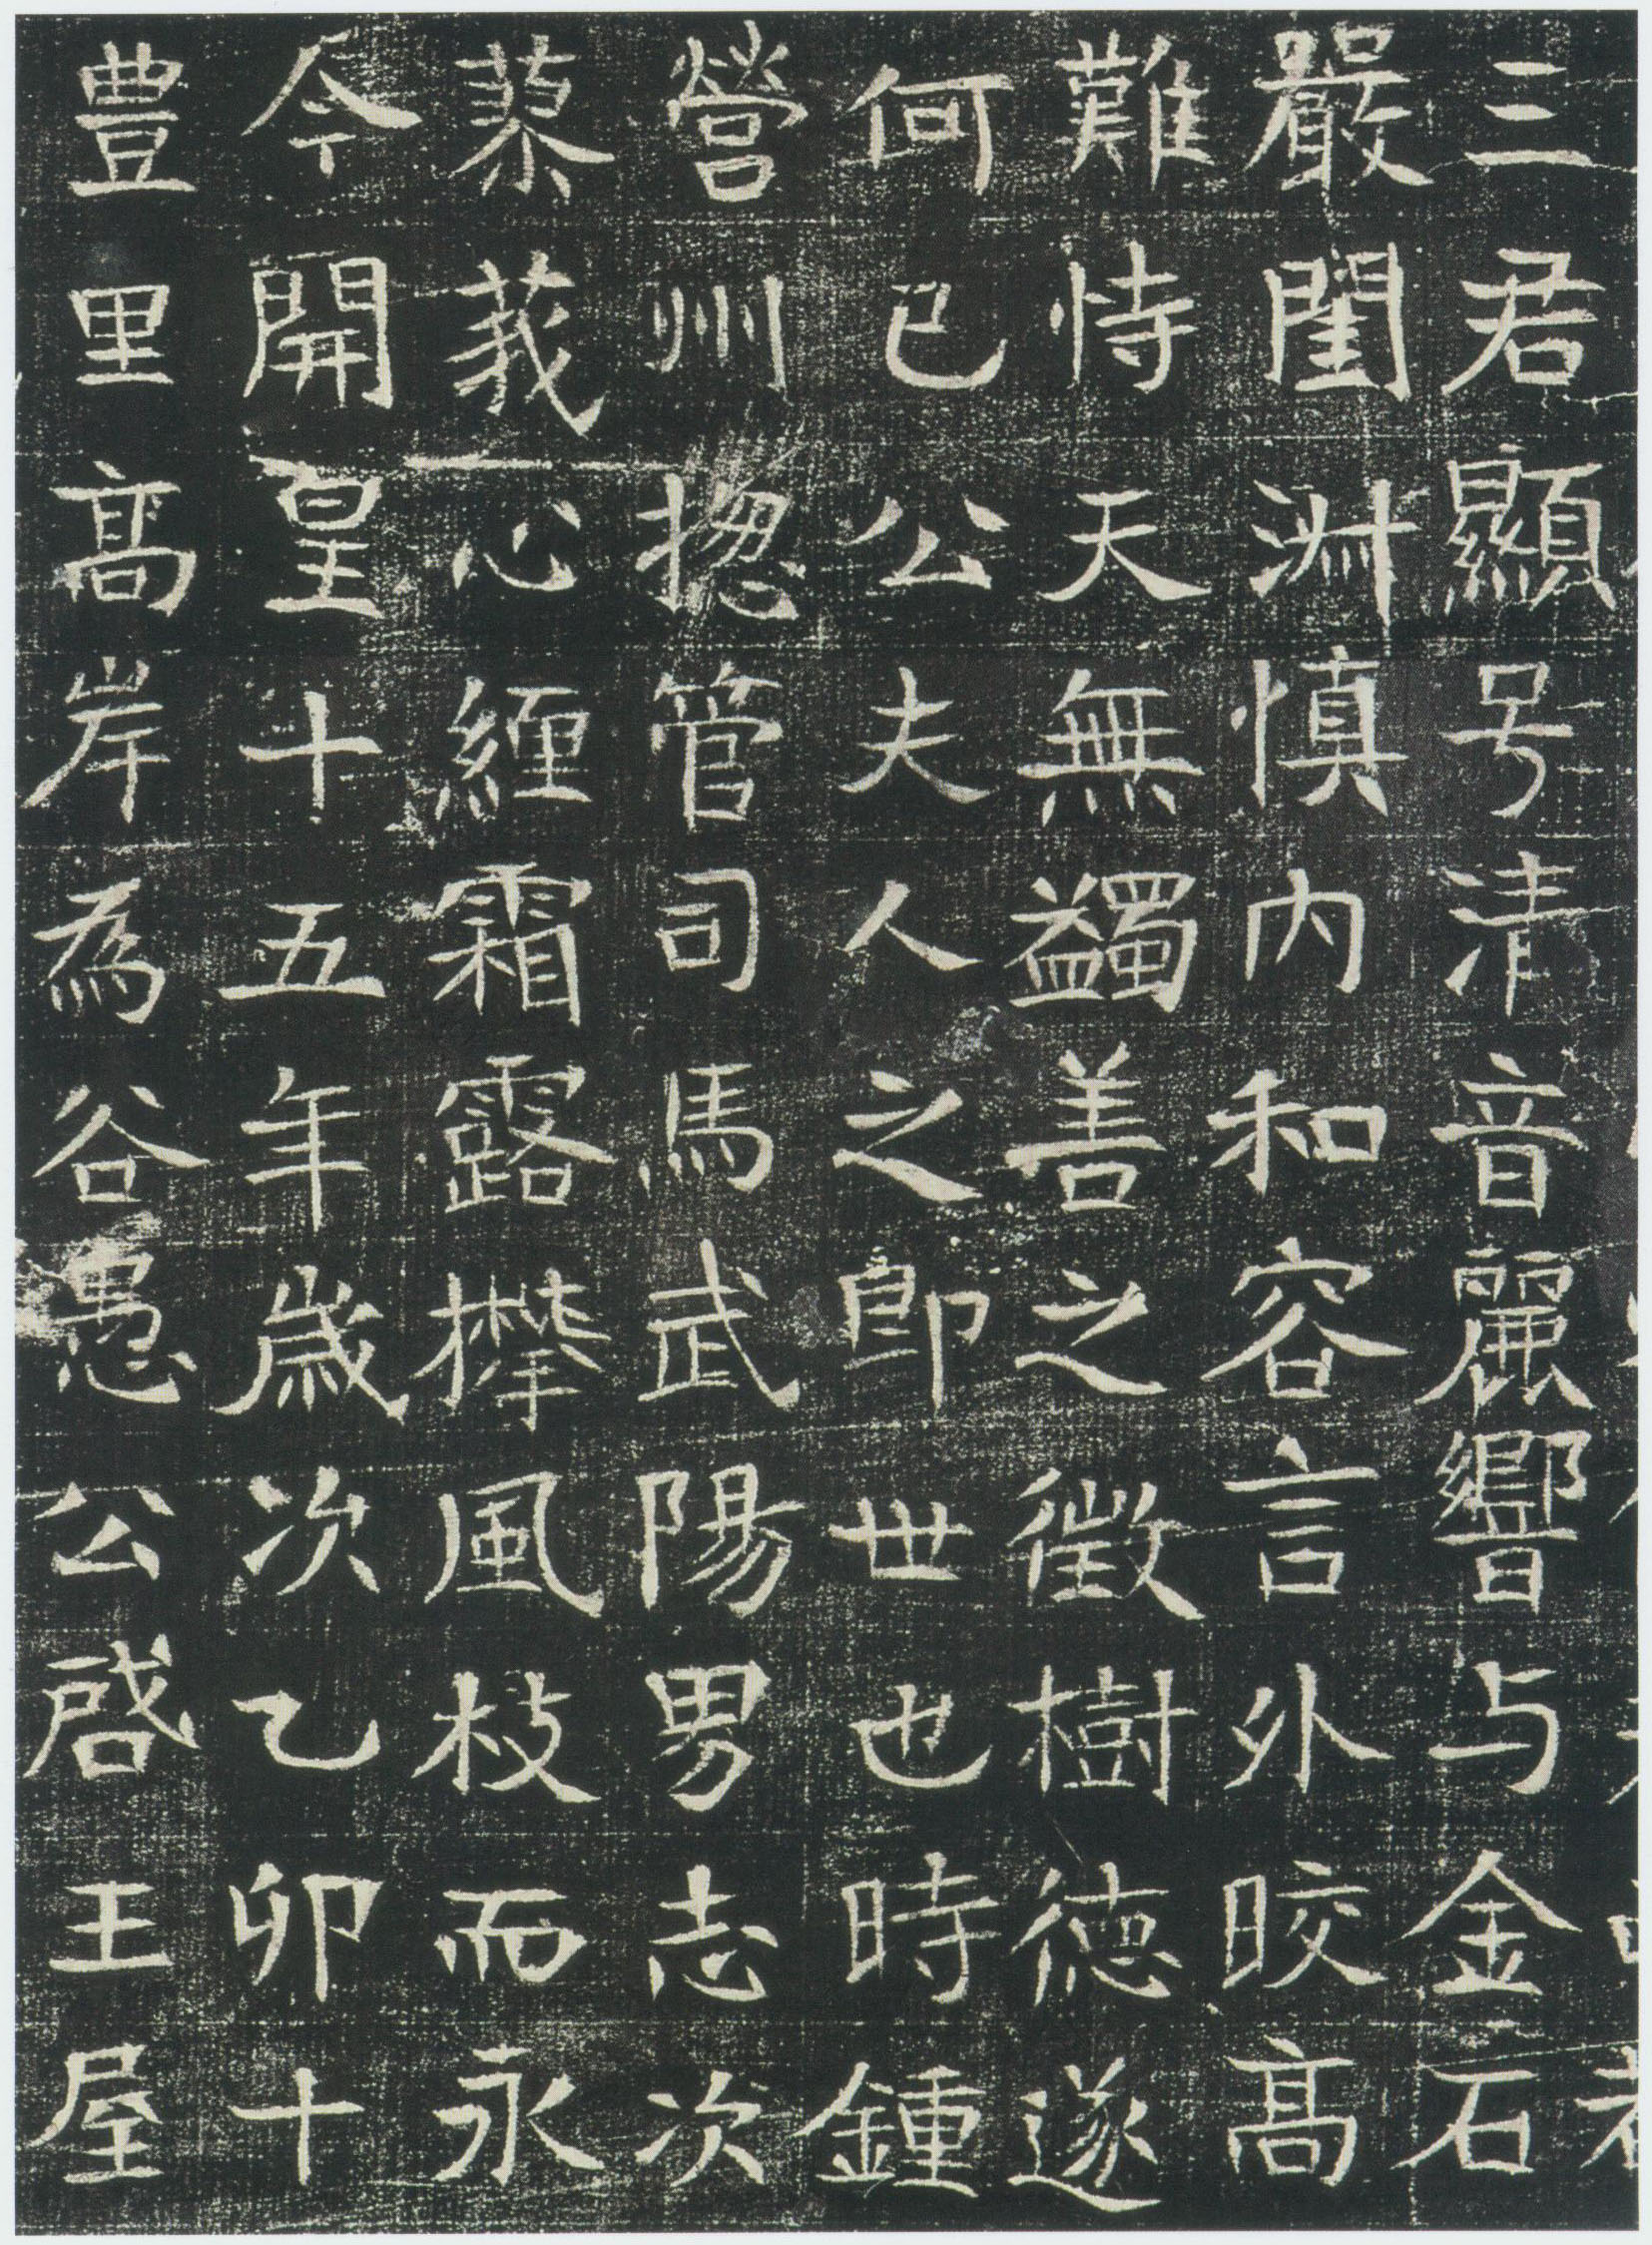 三君顯号清音麗響与金石
嚴閨渊慎内和容言外晈髙
難恃天無蠲善之徵樹德遂
何已公夫人之即世也時鍾
營州揔管司馬武陽男志次
蓼莪心纏霜露攀風枝而永
今開皇十五年歲次乙卯十
豊里髙岸為谷愚公啓王屋